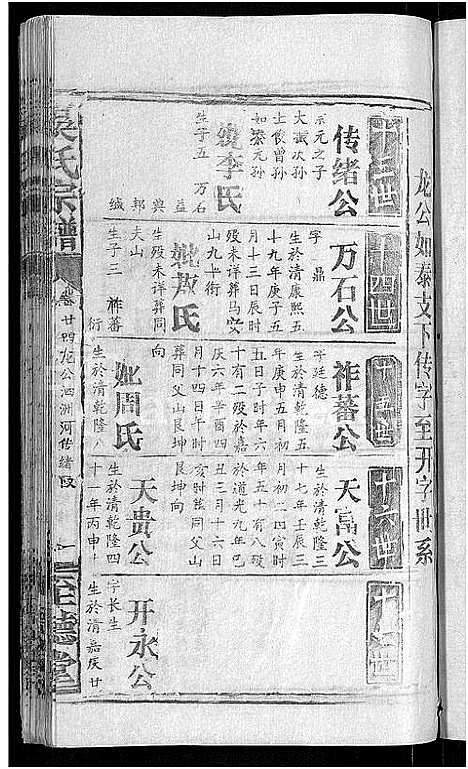 龙公如泰支下传字至开字世系
十三世
传绪公
泰元之子
大諴次孙
士俊曾孙
如泰元孙
妣李氏
生子五 万石
益
典
邦
缄
十四世
万石公
字鼎
生於清康熙五
十九年庚子五
月十三日辰时
殁未详葬马安
山九十衔
妣敖氏
生殁未详葬同
夫山
生子三 祚蕃
衍
向
十五世
祚蕃公
字廷德
生於清乾隆五
年庚申五月初
五日子时年六
十有二殁於嘉
庆六年辛酉四
月十四日午时
葬同父山艮坤
向
妣周氏
生於清乾隆八
十六世
天富公
生於清乾隆三
十七年壬辰三
月初二四寅时
年五十有八殁
於道光九年己
丑三月十六日
亥时葬同父山
艮坤向
天贵公
生於清乾隆四
十一年丙申十
开永公
字长生
生於清嘉庆廿
吴氏宗谱
卷廿四龙公泗洲河传绪段
至德堂